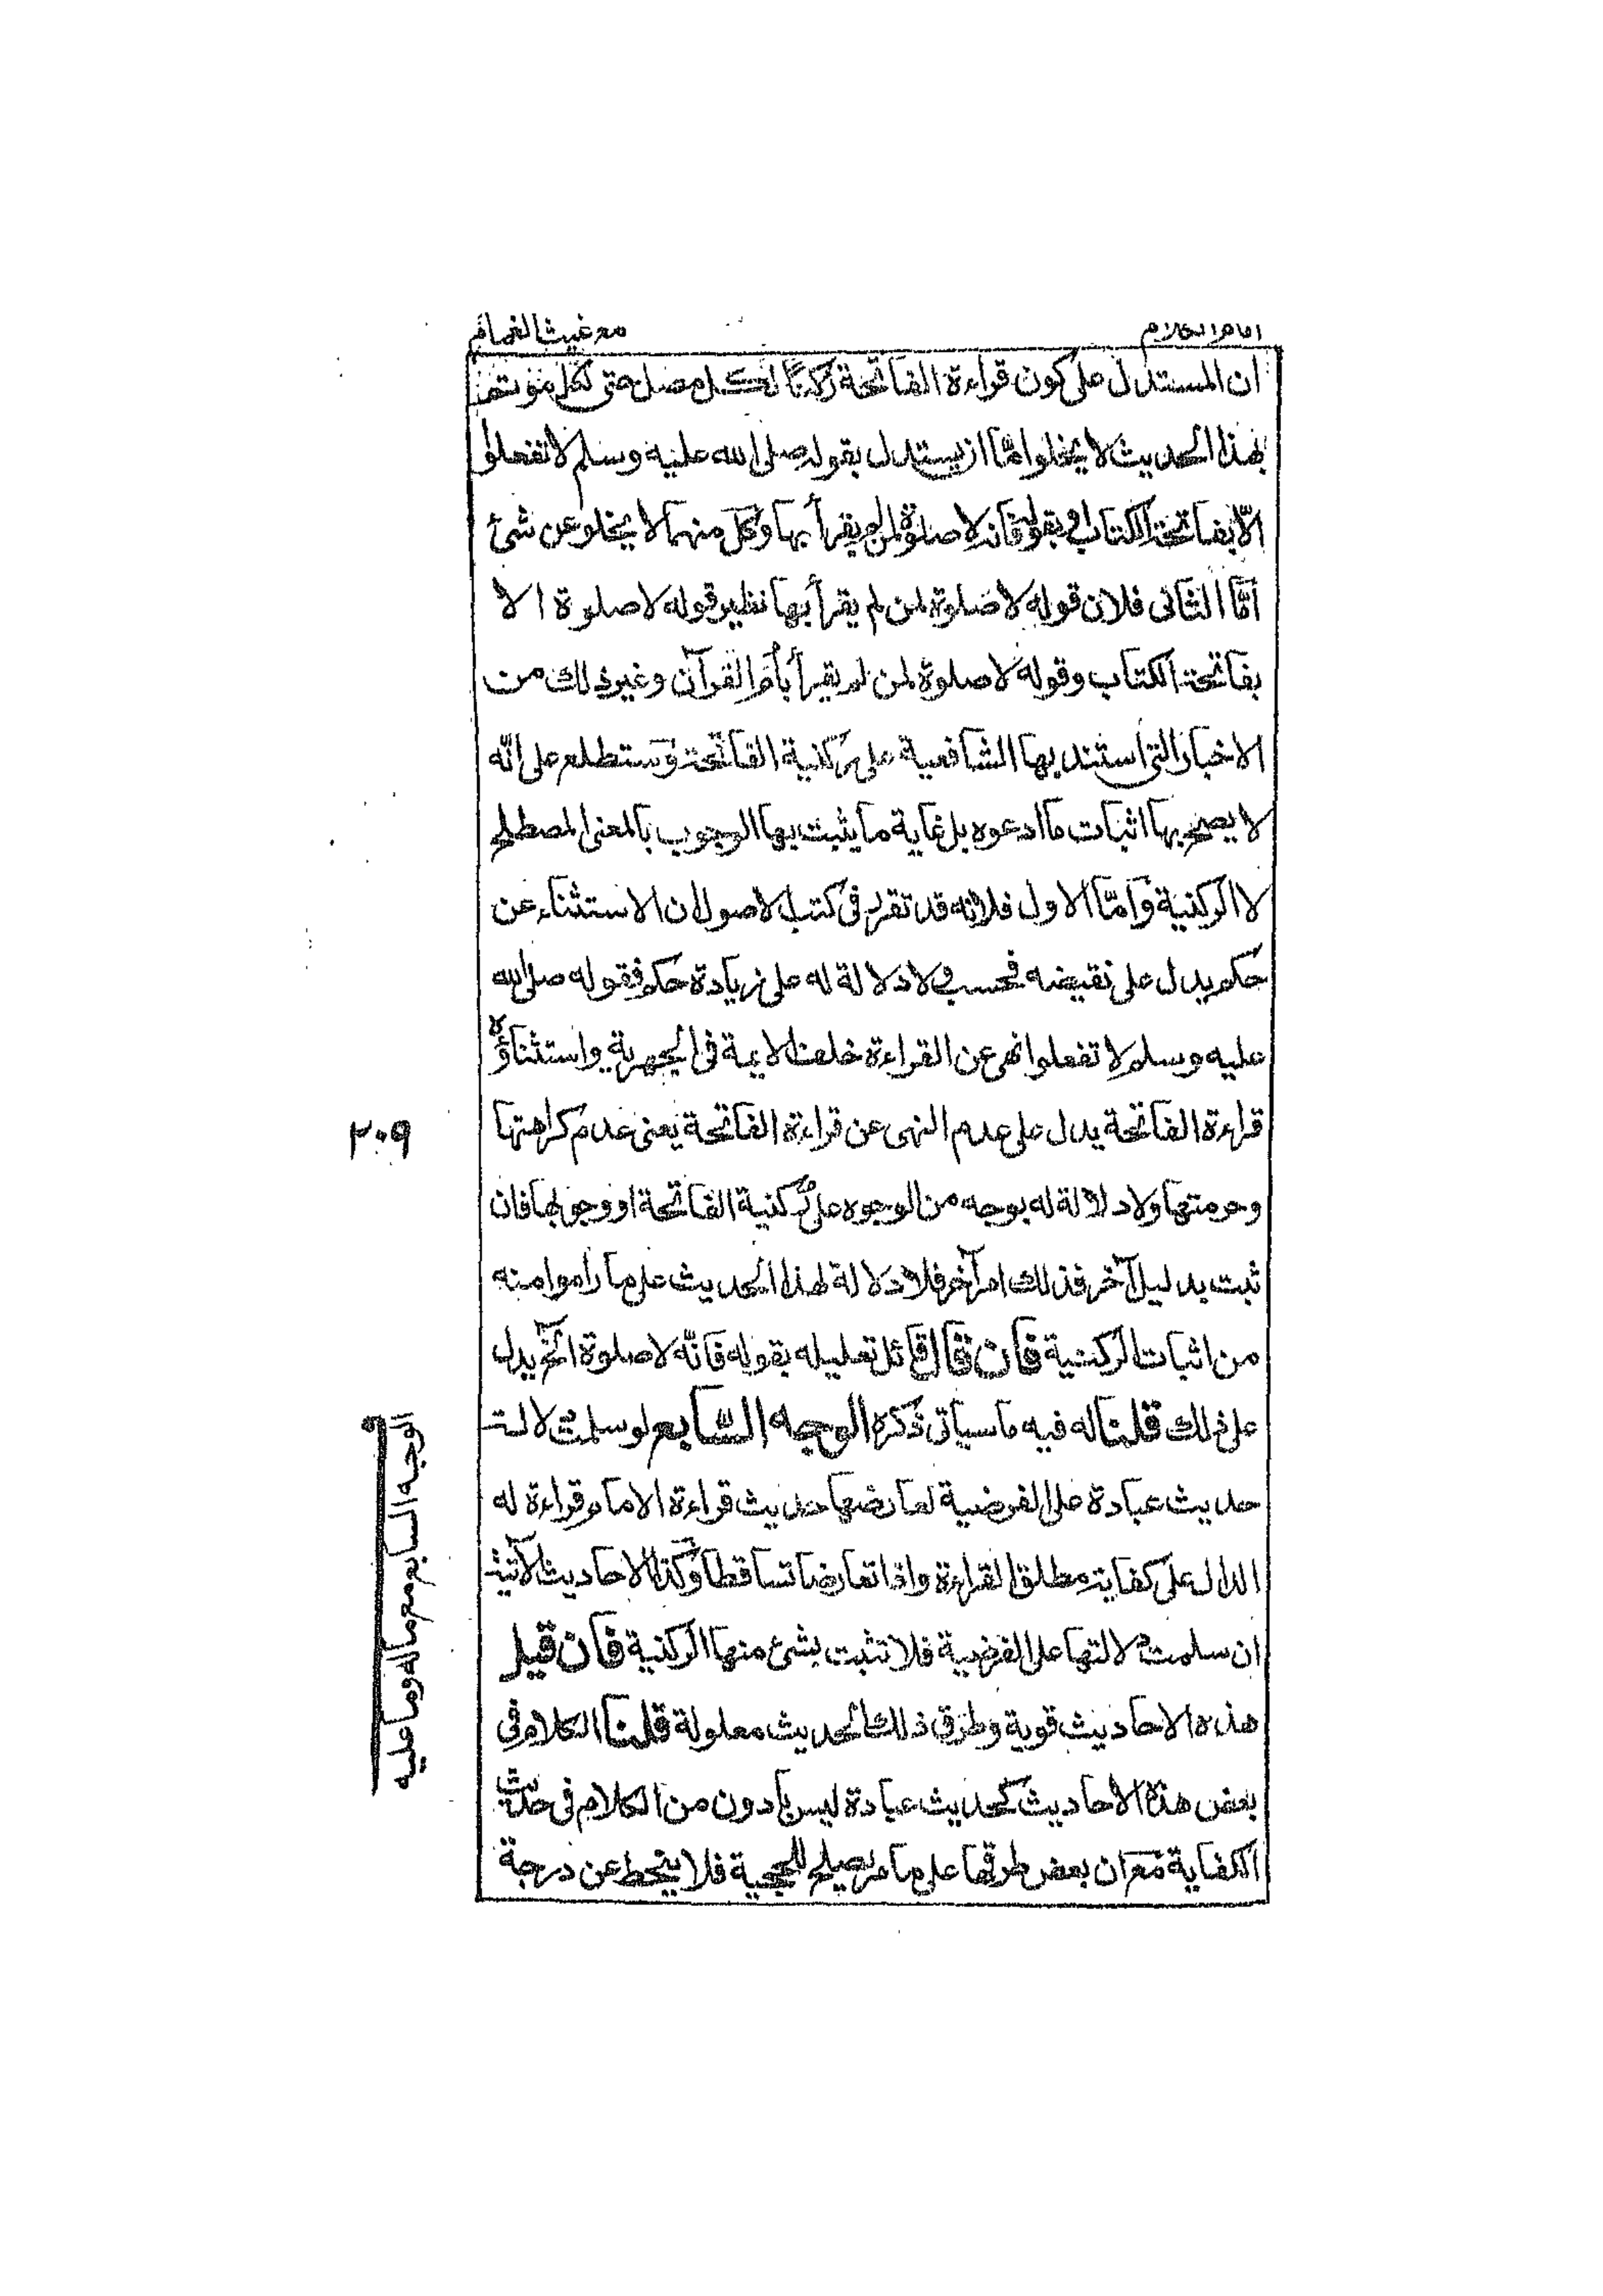 امام الكلام
مع غيث الغمام
ان المستدل على كون قراءة الفاتحة ركنًا لكل مصل حتى لكل مؤتم
بهذا الحديث لا يخلوا امّا ان يستدل بقوله صلى الله عليه وسلم لا تفعلوا
الّا بفاتحة الكتاب او بقوله فانه لا صلوة لمن لم يقرأ بها وكل منهما لا يخلو عن شئ
امّا الثانى فلان قوله لا صلوة لمن لم يقرأ بها نظير قوله لا صلوة الا
بفاتحة الكتاب وقوله لا صلوة لمن لم يقرأ بأم القرآن وغير ذلك من
الاخبار التى استند بها الشافعية على ركنية الفاتحة وستطلع على انّه
لا يصح بها اثبات ما ادعوه بل غاية ما يثبت بها الوجوب بالمعنى المصطلح
لا الركنية وامّا الاول فلانه قد تقرر فى كتب الاصول ان الاستثناء عن
حكم يدل على نقيضه فحسب ولا دلالة له على زيادة حكم فقوله صلى الله
عليه وسلم لا تفعلوا نهى عن القراءة خلف الايمة فى الجهرية واستثناؤه
قراءة الفاتحة يدل على عدم النهى عن قراءة الفاتحة يعنى عدم كراهتها
وحرمتها ولا دلالة له بوجه من الوجوه على ركنية الفاتحة او وجوبها فان
ثبت بدليل آخر فذلك امر آخر فلا دلالة لهذا الحديث على ما راموا منه
من اثبات الركنية فان قال قائل تعليله بقوله فانّه لا صلوة الخ يدل
على ذلك قلنا له فيه ما سيأتى ذكره الوجه السابع لو سلمت دلالت
حديث عبادة على الفرضية لعارضها حديث قراءة الامام قراءة له
الدال على كفاية مطلق القراءة واذا تعارضا تساقطا وكذا الاحاديث الآتية
ان سلمت دلالتها على الفرضية فلا تثبت بشئ منها الركنية فان قيل
هذه الاحاديث قوية وطرق ذلك الحديث معلولة قلنا الكلام فى
بعض هذه الاحاديث كحديث عبادة ليس بادون من الكلام فى حديث
الكفاية مع ان بعض طرقها على ما مر يصلح للحجية فلا ينحط عن درجة
٢٠٩
الوجه السابع مع ماله وما عليه